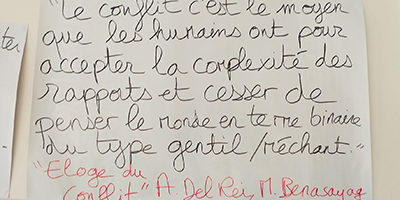 "Le conflit c'est le moyen
que les humains ont pour
accepter la complexité des
rapports et cesser de
penser le monde en terme binaire
du type gentil/méchant."
"Eloge du
conflit" A. Del Rei, M. Benasayag
ter